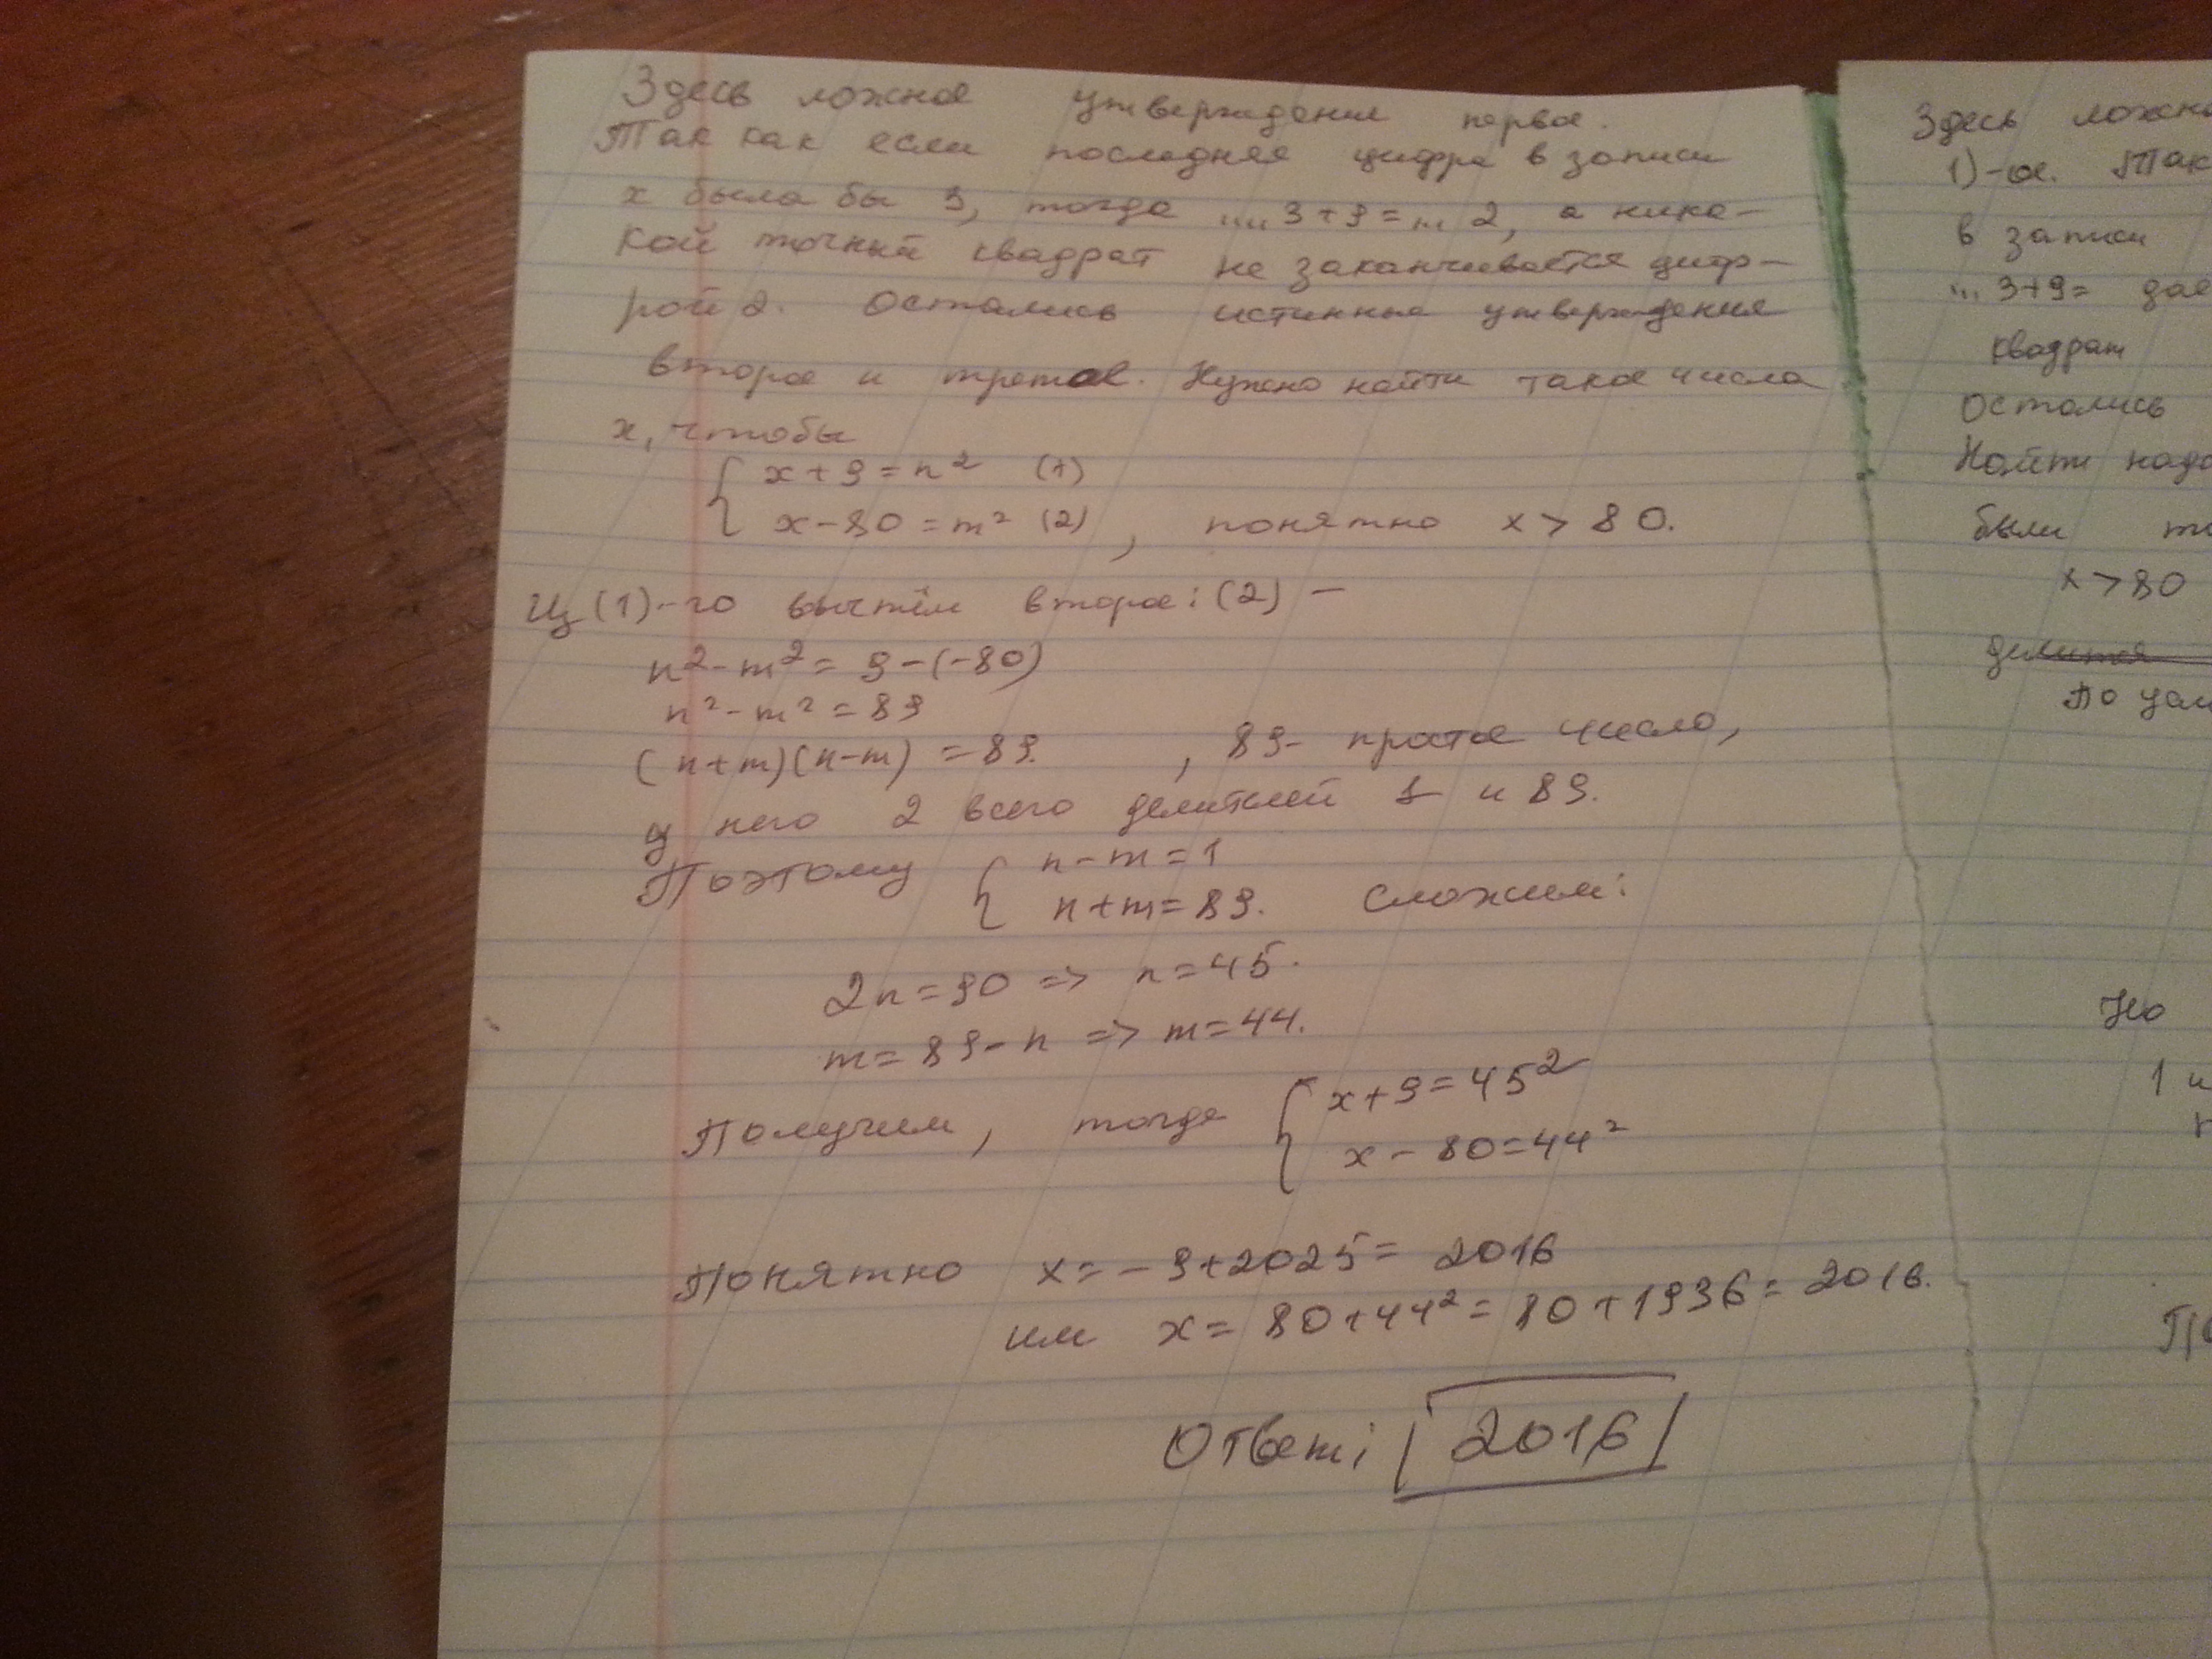 Здесь ложное утверждение первое.
Так как если последняя цифра в записи
x была бы 3, тогда ...3+9=...2, а ника-
кой точный квадрат не заканчивается циф-
рой 2. Остались истинные утверждения
второе и третье. Нужно найти такое числа
x, чтобы
x+9=n² (1)
x-80=m² (2), понятно x>80.
Из (1)-го вычтем второе: (2) -
n²-m²= 9-(-80)
n²-m²=89
(n+m)(n-m)=89. , 89- простое число,
у него 2 всего делителей 1 и 89.
Поэтому n-m=1
n+m=89. Сложим:
2n=90 => n=45.
m=89-n => m=44.
Получим, тогда x+9=45²
x-80=44²
Понятно x=-9+2025= 2016
или x= 80+44²= 80+1936=2016.
Ответ: 2016
Здесь ложн
1)-ое. Так
в записи
...3+9= дае
квадрат
Остались
Найти надо
были
x>80
По усл
Но
1 и